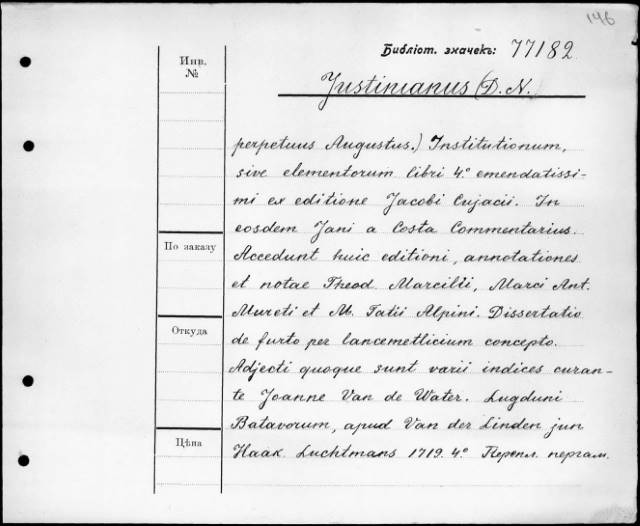 146
Библіот. значекъ: 77182
Инв.
№
Justinianus (D. N.)
perpetuus Augustus.) Institutionum,
sive elementorum libri 4.º emendatissi-
mi ex editione Jacobi Cujacii. In
eosdem Jani a Costa Commentarius.
По заказу
Accedunt huic editioni, annotationes
et notae Theod. Marcilii, Marci Ant.
Mureti et M. Tatii Alpini. Dissertatio
Откуда
de furto per lancemetlicium concepto.
Adjecti quoque sunt varii indices curan-
te Joanne Van de Water. Lugduni
Batavorum, apud Van der Linden jun
Цѣна
Haak Luchtmans 1719. 4º Перепл. пергам.